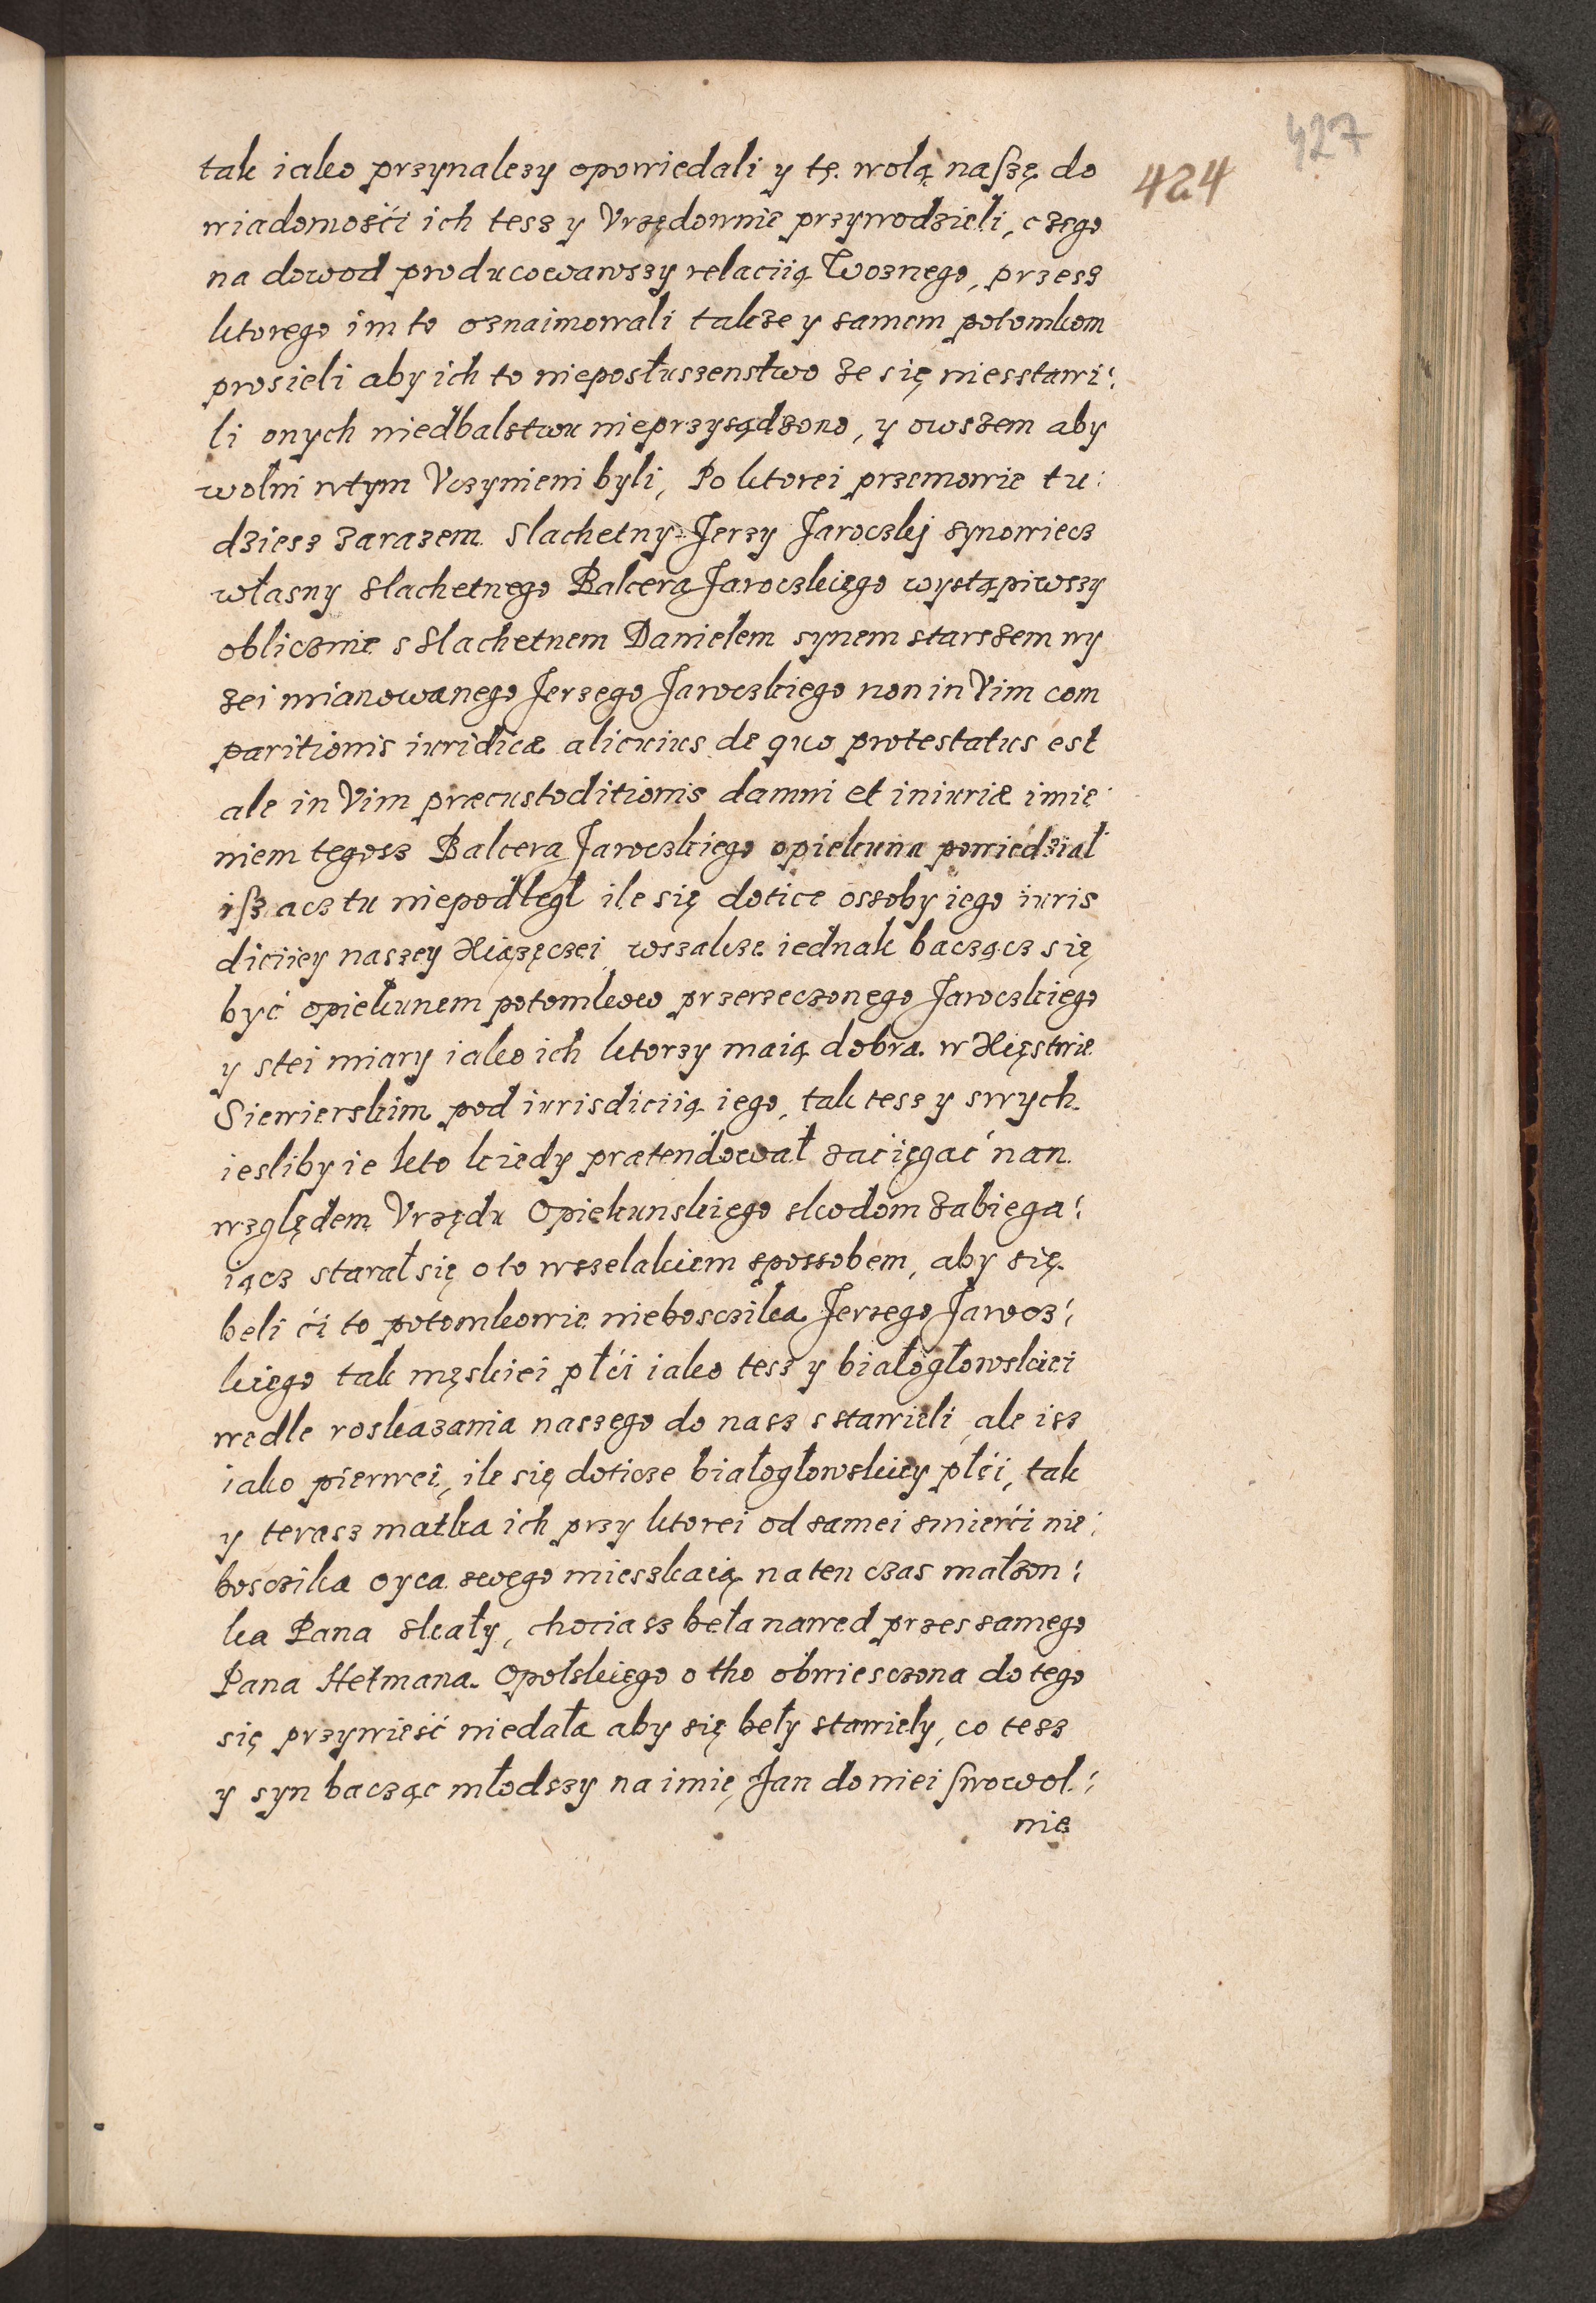 427
424
tak iako przynalezy opowiedali y tę wolą naszę do
wiadomośći ich tesz y Vrzędownie przywodzieli, czego
na dowod producowawszy relaciią Woznego, przesz
ktorego im to oznaimowali takze y samem potomkom
prosieli aby ich to nieposłuszenstwo ze się niesstawi:
li onych niedbalstwu nieprzysądzono, y owszem aby
wolni wtym Vczynieni byli, Po ktorei przemowie tu:
dziesz zarazem Slachetny Jerzy Jaroczkj synowiecz
własny Slachetnego Balcera Jaroczkiego wystąpiwszy
oblicznie s Slachetnem Danielem synem starszem wy
zei mianowanego Jerzego Jaroczkiego non in Vim com
paritionis iuridicæ alicuius de quo protestatus est
ale in Vim præcustoditionis damni et iniuriæ imie:
niem tegosz Balcera Jaroczkiego opiekuna powiedział
isz acz tu niepodległ ile się dotice ossoby iego iuris
diciiey naszey Xiązęczei, wszakze iednak baczącz się
być opiekunem potomkow przerzeczonego Jaroczkiego
y stei miary iako ich ktorzy maią dobra w Xięstwie
Siewierskim pod iurisdiciią iego, tak tesz y swych
iesliby ie kto kiedy prætendował zaciegać nan
względem Vrzędu Opiekunskiego skodom zabiega:
iącz starał się o to wszelakiem spossobem, aby się
beli ći to potomkowie nieboscika Jerzego Jarocz:
kiego tak męskiei płći iako tesz y białogłowskiei
wedle roskazania naszego do nasz sstawieli, ale isz
iako pierwei, ile się doticze białogłowskiey płći, tak
y terasz matka ich przy ktorei od samei smierći nie:
boscika oyca swego mieszkaią na ten czas małzon:
ka Pana Skały, chociasz beła nawed przes samego
Pana Hetmana Opolskiego o tho obwiesczona do tego
się przywieść niedała aby się beły stawieły, co tesz
y syn bacząc młodszy na imię Jan do niei swowol:
nie